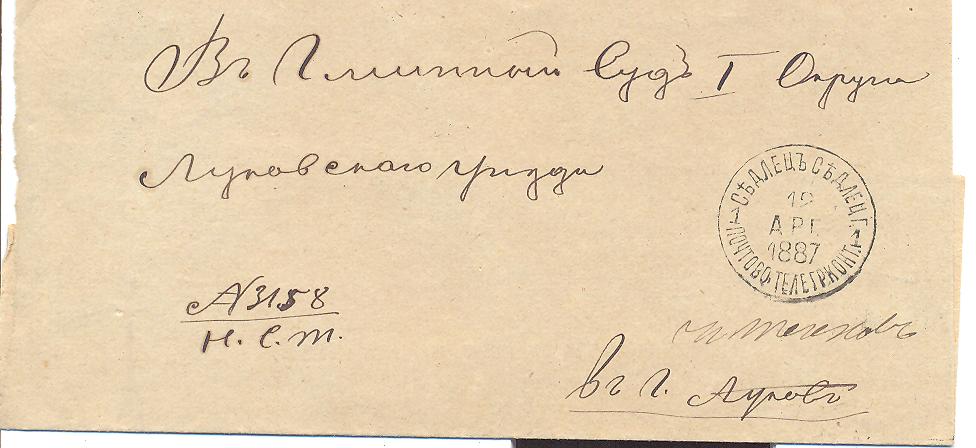 Въ Гминный Судъ I Округа
Луковскаго уѣзда
СѢДЛЕЦЪ СѢДЛЕЦ. Г.
19
АПР.
1887
ПОЧТОВО-ТЕЛЕГР. КОНТ.
№ 3158
Н. С. Т.
въ г. Луковъ